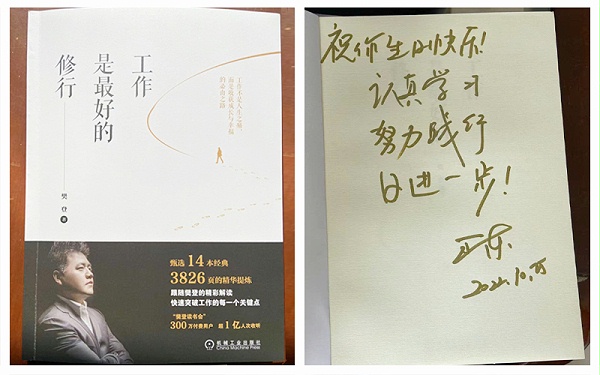 工作
是最好的
修行
樊登 著
工作不是人生全部，
甄选14本经典
3826页的精华提炼
跟随樊登的精彩解读
快速突破工作的每一个关键点
“樊登读书会”
300万付费用户 超1亿人次收听
机械工业出版社
China Machine Press
祝你生日快乐!
认真学习
努力践行
日进一步!